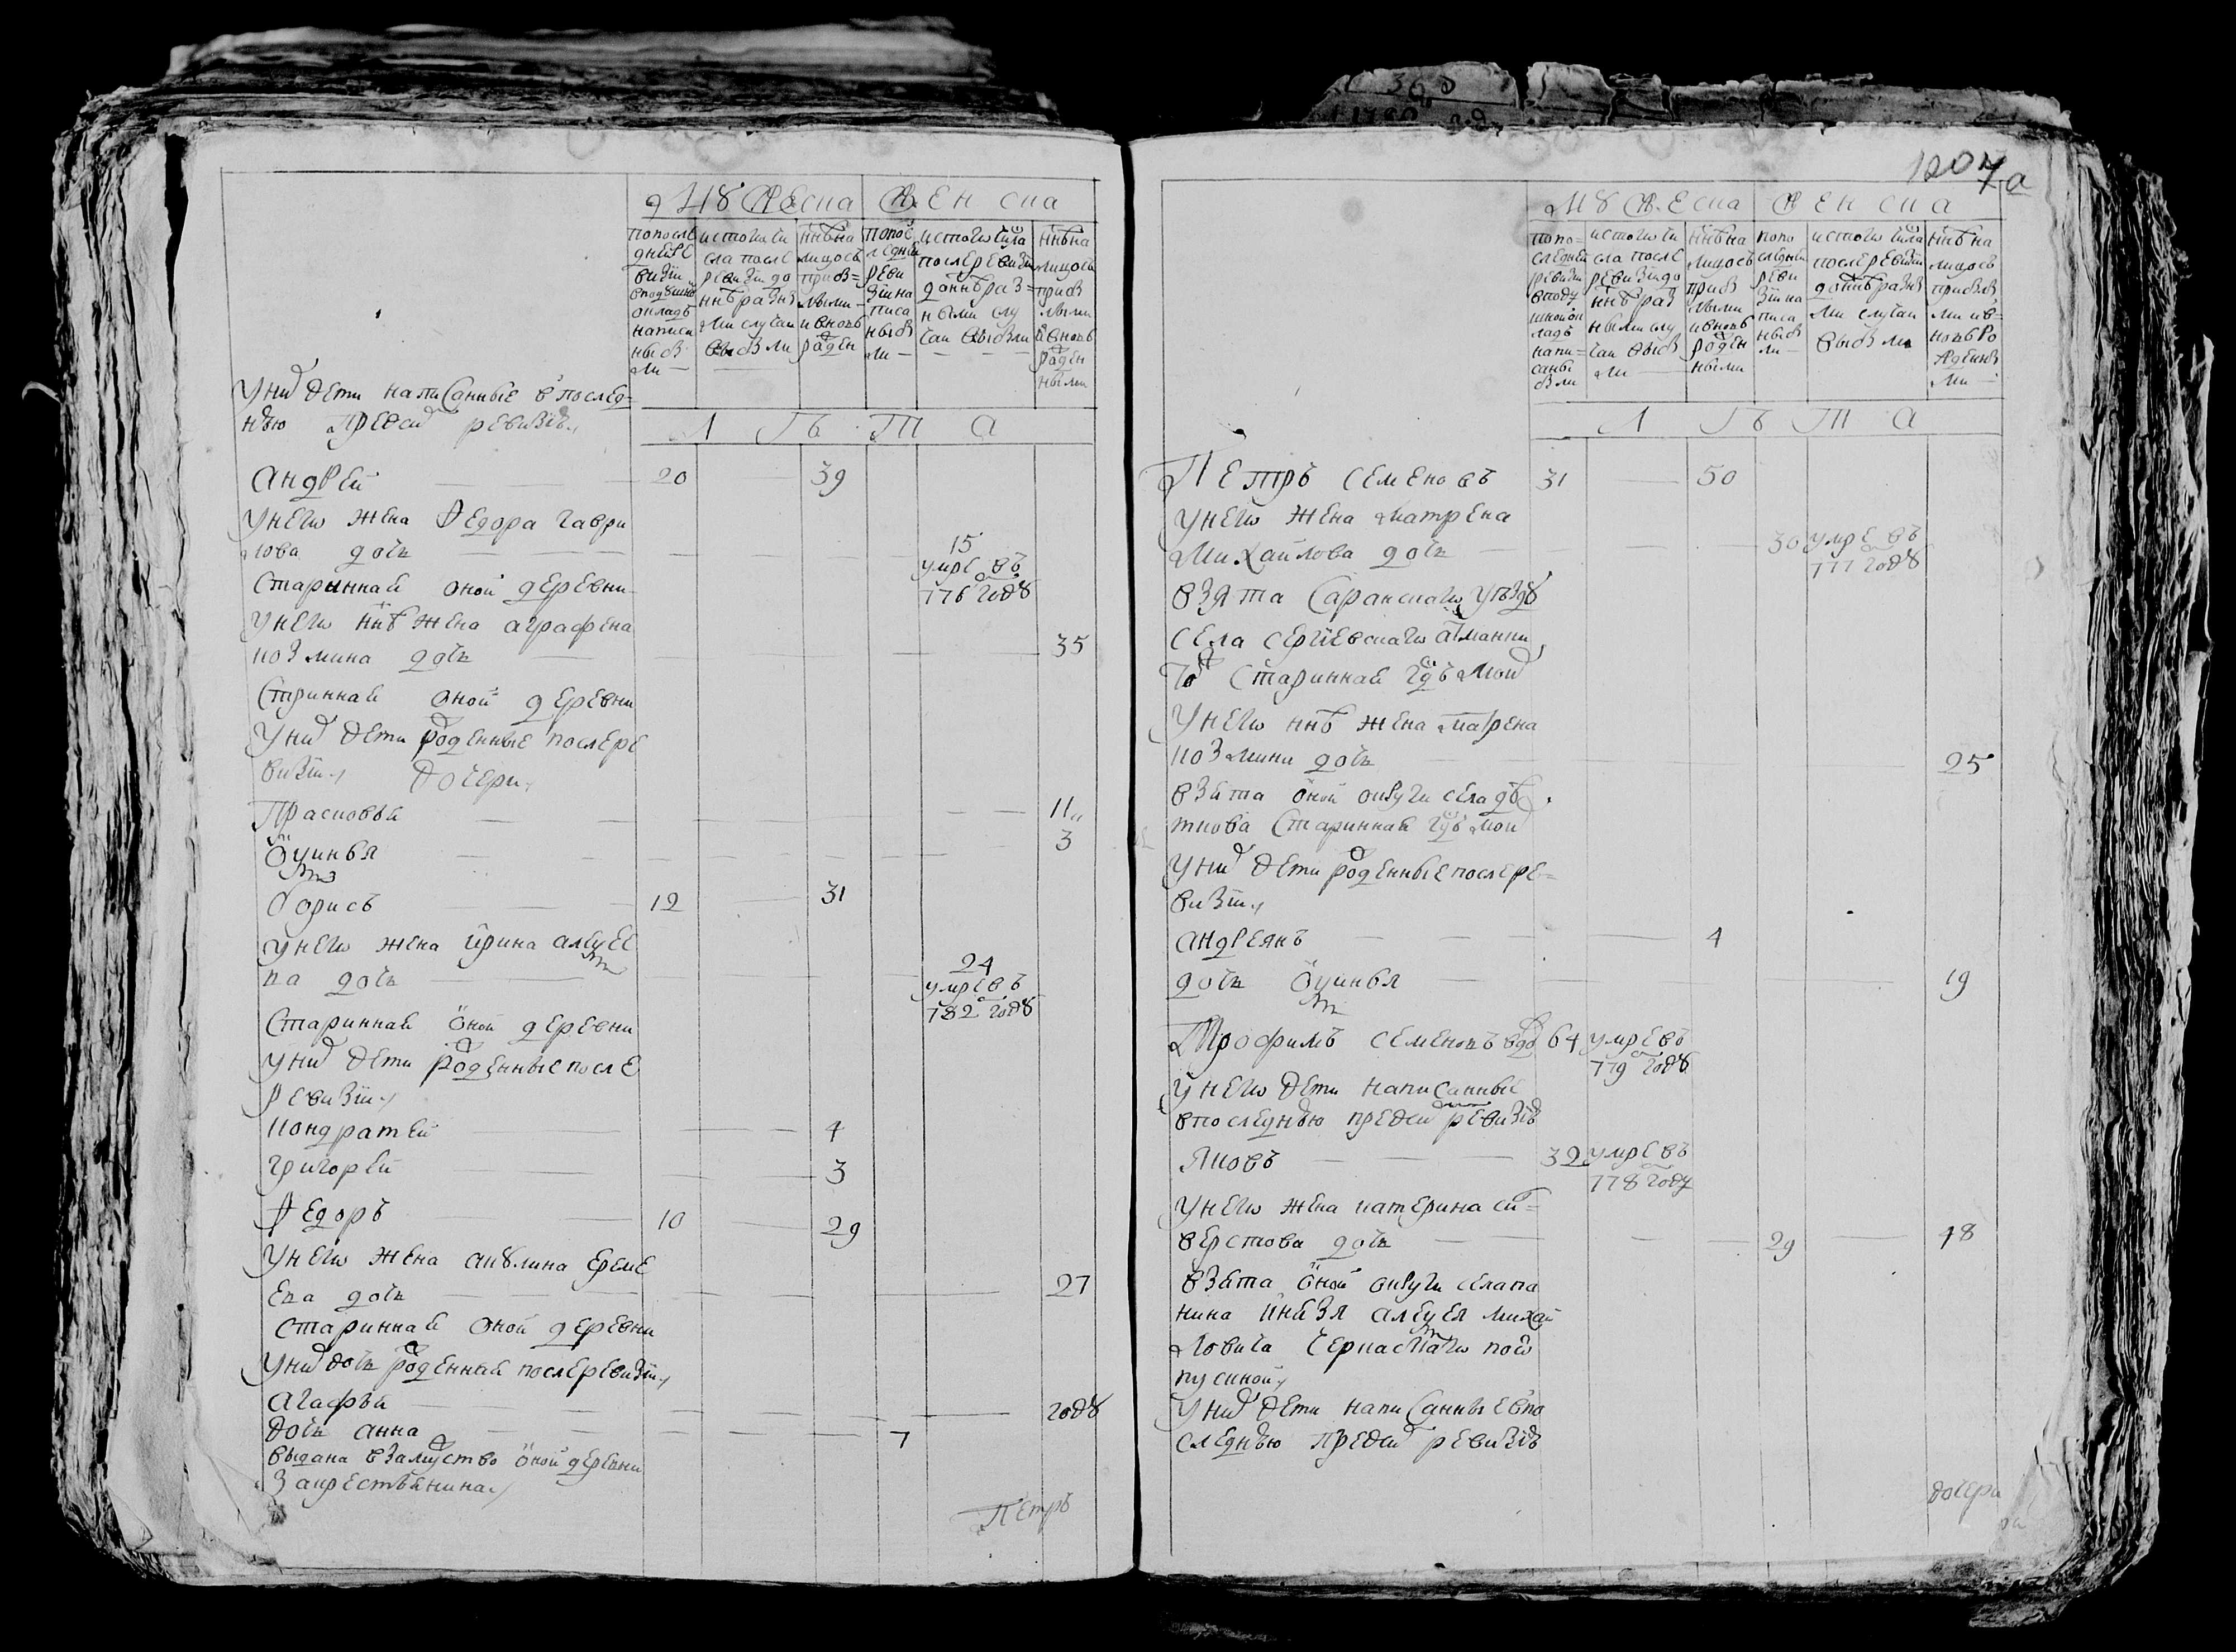 МУЖЕСКА ЖЕНСКА
попосле
днеи ре
визии
вподушно
окладъ
написа
ны
ми
истого чи
сла после
ревизии до
ннѣ разны
ми случаи
выбыли
ннѣ на
лицо съ
прибы
лыми
и вновь
рожден
попос
ледней
реви
зии на
писа
ны
ми
истого числа
после ревизии
до ннѣ раз=
ными слу
чаи выбыли
ннѣ на
лицо съ
прибы
лыми
и вновь
рожден
ными
У них дети написанные в послед=
нѣю пред сим ревизию
Л Ѣ Т А
Андрей 20 39
У него жена Федора Гаври
лова дочь 15
умре въ
776 году
Стариннай оной деревни
У него ннѣ жена Аграфена
Козмина дочь 35
Стриннай оной деревни
У них дети рожденные после ре
визии дочери
Прасковья 11
Акинья 3
Борисъ 12 31
У него жена Ирина Алексее
ва дочь 24
умре въ
782 году
Стариннай оной деревни
У них дети рожденные после
ревизии
Кондратей 4
Григорей 3
Федоръ 10 29
У него жена Акулина Ереме
ева дочь 27
Стариннай оной деревни
У них дочь рожденная после ревизии
Агафья году
дочь Анна 7
выдана в замужство оной деревни
за крестьянина
Петръ
1207
а
МУЖЕСКА ЖЕНСКА
попо=
следней
ревизии
в поду
шной ок
ладъ
напи=
саны
исто чи
сла после
ревизии до
ннѣ раз
ными слу
чаи выбы
ли
ннѣ на
лицо съ
прибы
лыми
и вновь
рожден
ными
попо
следней
реви
зии на
писа
ны
ми
исто числа
после ревизии
до ннѣ разны
ми случаи
выбыли
ннѣ на
лицо съ
прибылы
ми и в=
новь ро
жденны
ми
Л Ѣ Т А
Петръ Семеновъ 31 50
У него жена Матрена
Михайлова дочь 30 умре въ
777 году
взята Саранскаго уѣзду
села Сергиевскаго
Стариннай
У него ннѣ жена Марена
Козмина дочь 25
взята оной округи села
Стариннай
У них дети рожденные после ре=
визии
Андреянъ 4
дочь Акинья 19
Трофимъ Семеновъ вдов 64 умре въ
779 году
У него дети написанные
в последнѣю пред сим ревизию
Яковъ 32 умре въ
778 году
У него жена Катерина Си=
верстова дочь 29 48
взята оной округи села
князя Алексея Михай
ловича Черкаскаго по
купкиной
У них дети написанные в по
следнѣю пред сим ревизию
дочери